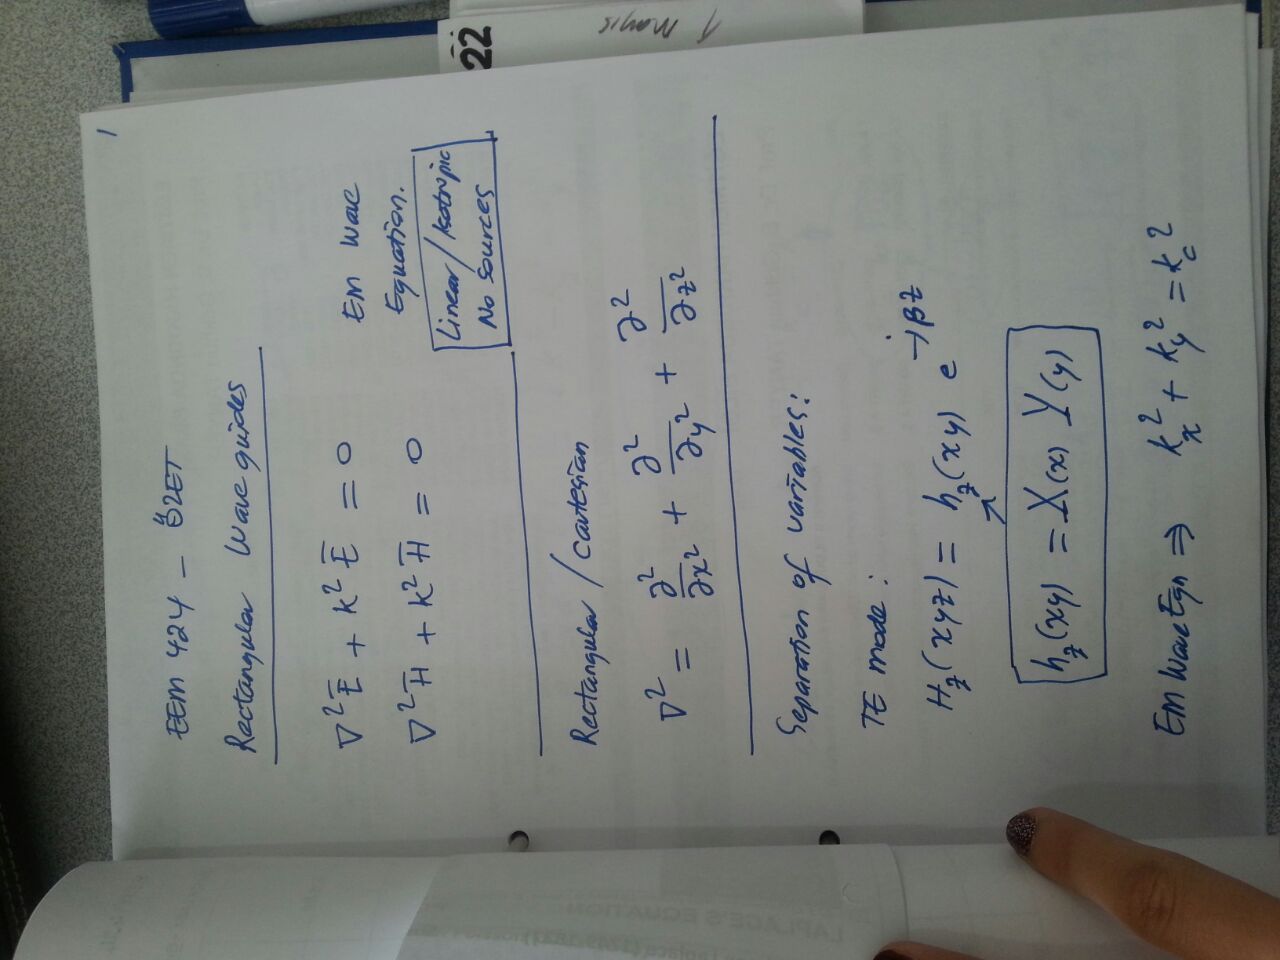 1
EEM 424 – ÖZET
Rectangular Wave guides
∇²E̅ + k²E̅ = 0 EM Wave
∇²H̅ + k²H̅ = 0 Equation.
Linear/Isotropic
No sources
Rectangular / Cartesian
∇² = ∂²/∂x² + ∂²/∂y² + ∂²/∂z²
Separation of variables:
TE mode:
H_z(xyz) = h_z(xy) e^-jβz
h_z(xy) = X(x) Y(y)
EM Wave Eqn ⇒ k_x² + k_y² = k_c²
22
1 Mayıs
LAPLACE'S EQUATION